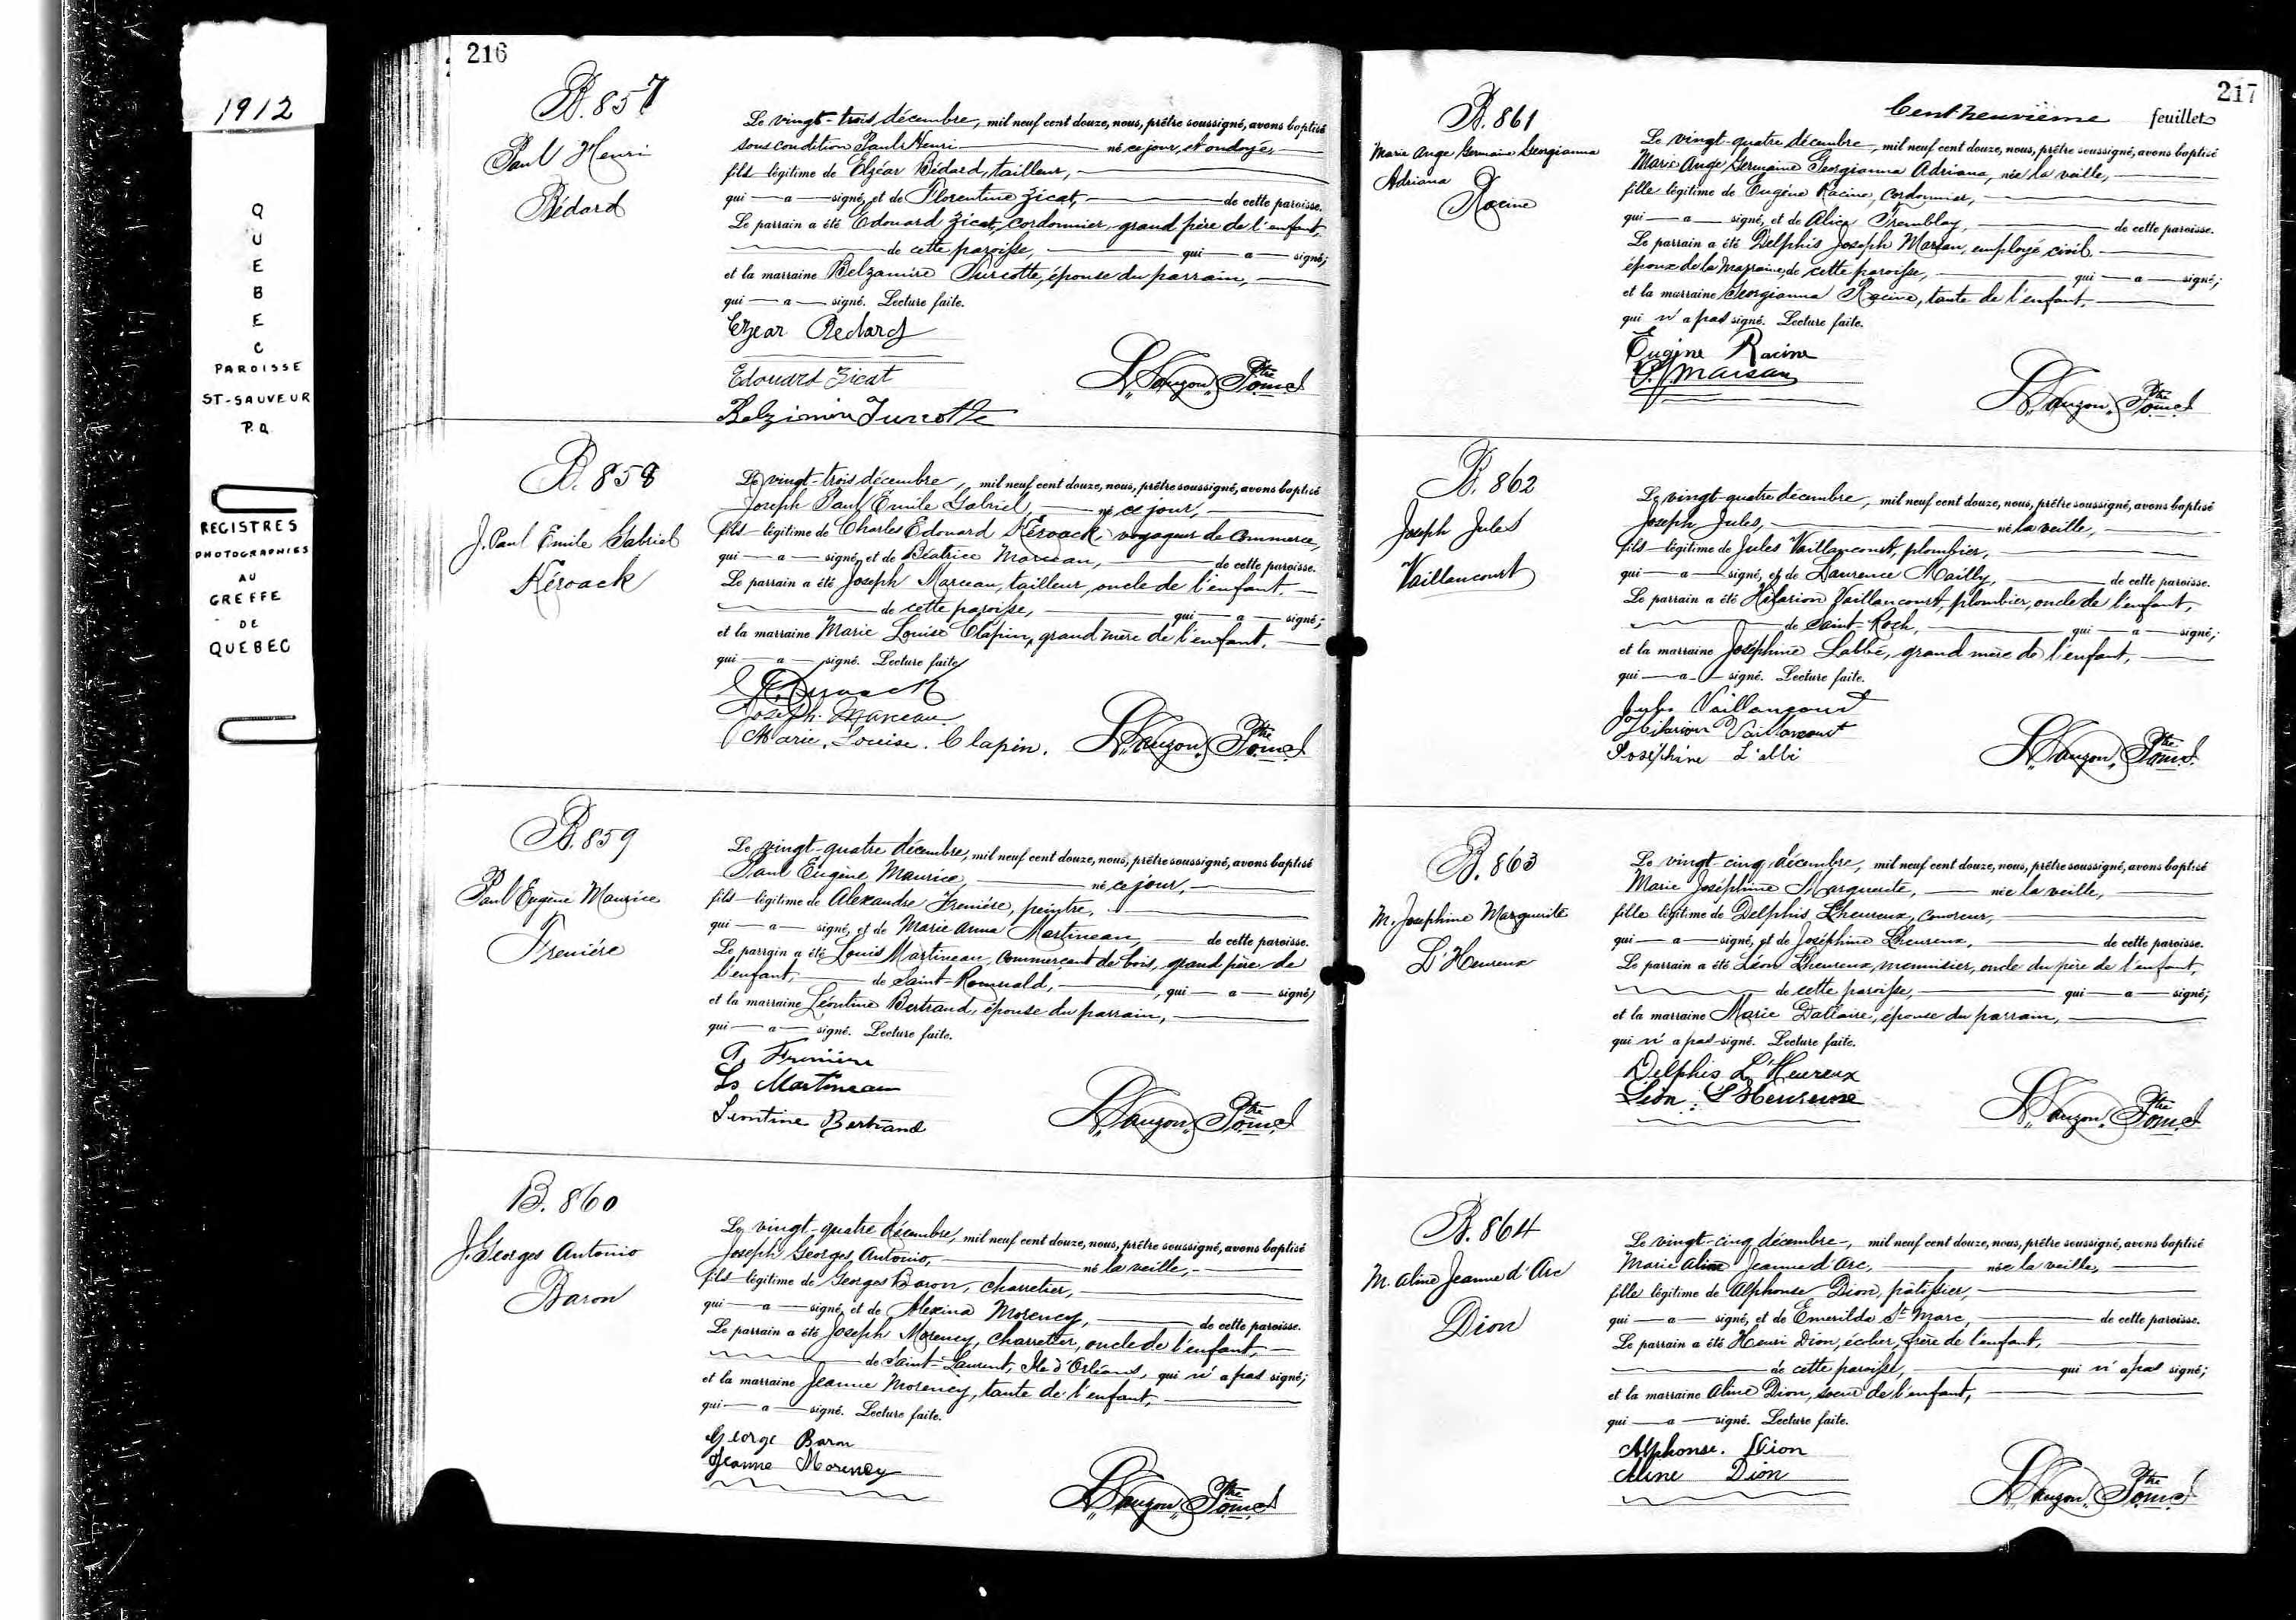 1912
QUEBEC
PAROISSE
ST-SAUVEUR
P.Q.
REGISTRES
PHOTOGRAPHIES
AU
GREFFE
DE
QUEBEC
216
B. 857
Paul Henri
Bédard
Le vingt-trois décembre, mil neuf cent douze, nous, prêtre soussigné, avons baptisé
sous condition Paul Henri né ce jour, et ondoyé,
fils légitime de Elzéar Bédard, tailleur,
qui a signé, et de Florentine Zicat, de cette paroisse.
Le parrain a été Edouard Zicat, cordonnier, grand père de l'enfant,
de cette paroisse, qui a signé;
et la marraine Belzamire Turcotte, épouse du parrain,
qui a signé. Lecture faite.
Elzear Bedard
Edouard Zicat
Turcotte
Ptre
B. 858
J. Paul Emile Gabriel
Kéroack
Le vingt-trois décembre, mil neuf cent douze, nous, prêtre soussigné, avons baptisé
Joseph Paul Emile Gabriel, né ce jour,
fils légitime de Charles Edouard Kéroack, voyageur de commerce,
qui a signé, et de Béatrice Marceau, de cette paroisse.
Le parrain a été Joseph Marceau, tailleur, oncle de l'enfant,
de cette paroisse, qui a signé;
et la marraine Marie Louise Clapin, grand mère de l'enfant,
qui a signé. Lecture faite
Joseph Marceau
Marie Louise Clapin.
Ptre
B. 859
Paul Eugène Maurice
Freniére
Le vingt-quatre décembre, mil neuf cent douze, nous, prêtre soussigné, avons baptisé
Paul Eugène Maurice, né ce jour,
fils légitime de Alexandre Freniére, peintre,
qui a signé, et de Marie Anna Martineau, de cette paroisse.
Le parrain a été Louis Martineau, commerçant de bois, grand père de
l'enfant, de Saint-Romuald, qui a signé;
et la marraine Léontine Bertrand, épouse du parrain,
qui a signé. Lecture faite.
A. Freniere
Ls Martineau
Leontine Bertrand
Ptre
B. 860
J. Georges Antonio
Baron
Le vingt-quatre décembre, mil neuf cent douze, nous, prêtre soussigné, avons baptisé
Joseph Georges Antonio, né la veille,
fils légitime de Georges Baron, charretier,
qui a signé, et de Alexina Morency, de cette paroisse.
Le parrain a été Joseph Morency, charretier, oncle de l'enfant,
de Saint-Laurent, Ile d'Orléans, qui n'a pas signé;
et la marraine Jeanne Morency, tante de l'enfant,
qui a signé. Lecture faite.
George Baron
Jeanne Morency
Ptre
217
Cent neuvième feuillet
B. 861
Marie Ange Germaine Georgianna
Adriana
Racine
Le vingt-quatre décembre, mil neuf cent douze, nous, prêtre soussigné, avons baptisé
Marie Ange Germaine Georgianna Adriana, née la veille,
fille légitime de Eugène Racine, cordonnier,
qui a signé, et de Alice Tremblay, de cette paroisse.
Le parrain a été Delphis Joseph Marsan, employé civil
époux de la marraine, de cette paroisse, qui a signé;
et la marraine Georgianna Racine, tante de l'enfant,
qui n'a pas signé. Lecture faite.
Eugène Racine
Marsan
Ptre
B. 862
Joseph Jules
Vaillancourt
Le vingt-quatre décembre, mil neuf cent douze, nous, prêtre soussigné, avons baptisé
Joseph Jules, né la veille,
fils légitime de Jules Vaillancourt, plombier,
qui a signé, et de Laurence Mailly, de cette paroisse.
Le parrain a été Hilarion Vaillancourt, plombier, oncle de l'enfant,
de Saint-Roch, qui a signé;
et la marraine Joséphine Labbé, grand mère de l'enfant,
qui a signé. Lecture faite.
Jules Vaillancourt
Hilarion Vaillancourt
Joséphine
Ptre
B. 863
M. Josephine Marguerite
L'Heureux
Le vingt-cinq décembre, mil neuf cent douze, nous, prêtre soussigné, avons baptisé
Marie Joséphine Marguerite, née la veille,
fille légitime de Delphis Lheureux, couvreur,
qui a signé, et de Joséphine Lheureux, de cette paroisse.
Le parrain a été Léon Lheureux, menuisier, oncle du père de l'enfant,
de cette paroisse, qui a signé;
et la marraine Marie Dallaire, épouse du parrain,
qui n'a pas signé. Lecture faite.
Delphis L'Heureux
Léon L'Heureux
Ptre
B. 864
M. Aline Jeanne d'Arc
Dion
Le vingt-cinq décembre, mil neuf cent douze, nous, prêtre soussigné, avons baptisé
Marie Aline Jeanne d'Arc, née la veille,
fille légitime de Alphonse Dion, pâtissier,
qui a signé, et de Emerilda St Marc, de cette paroisse.
Le parrain a été Henri Dion, écolier, frère de l'enfant,
de cette paroisse, qui n'a pas signé;
et la marraine Aline Dion, soeur de l'enfant,
qui a signé. Lecture faite.
Alphonse. Dion
Aline Dion
Ptre